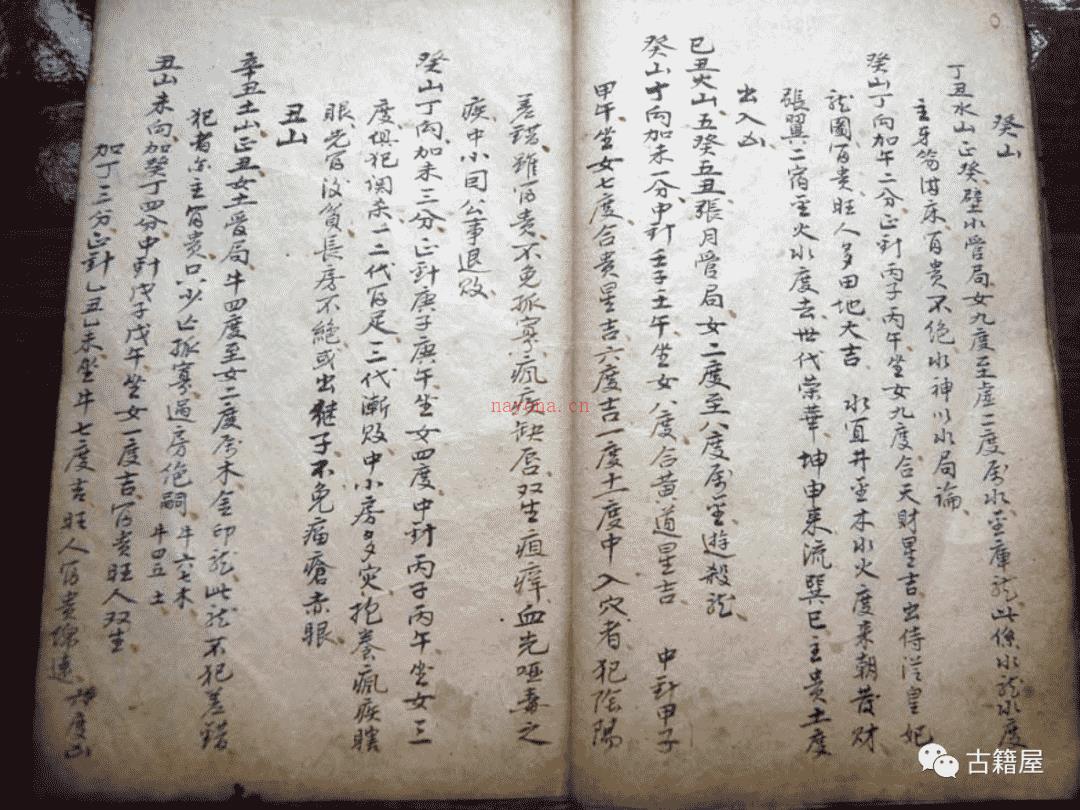 癸山
丁丑水山正癸壁水管局女九度至虚二度属水金庫龍此係水龍水度
主牙笏滿床富貴不绝水神以水局論
癸山丁向加午二分正針丙子丙午坐女九度合天財星吉出侍從皇妃
龍國富貴旺人多田地大吉 水宜井至木水火度来朝發財
張翼二宿至火水度去世代荣華坤申来流巽巳主貴土度
出入凶
巳丑火山五癸五丑張月管局女二度至八度属金遊殺龍
癸山丁向加未一分中針壬子壬午坐女八度合黃道星吉 中針甲子
甲午坐女七度合貴星吉六度吉一度十一度中入穴者犯陰陽
差錯雖富貴不免孤寡瘋疾缺唇双生疽痒血光哑毒之
疾中小同公事退敗
癸山丁向加未三分正針庚子庚午坐女四度中針丙子丙午坐女三
度俱犯関杀一二代富足三代漸敗中小房多灾抱養瘋疾瞎
眼先富後貧長房不絶或出继子不免痛瘡赤眼
丑山
辛丑土山正丑女土管局牛四度至女二度属木金印龍此龍不犯差錯
犯者亦主富貴口少亡孤寡過房绝嗣 牛六七木 牛四五土
丑山未向加癸丁四分中針戊子戊午坐女一度吉富贵旺人双生
加丁三分正針乙丑乙未坐牛七度吉旺人富貴綿遠 度凶
nayona.cn
古籍屋